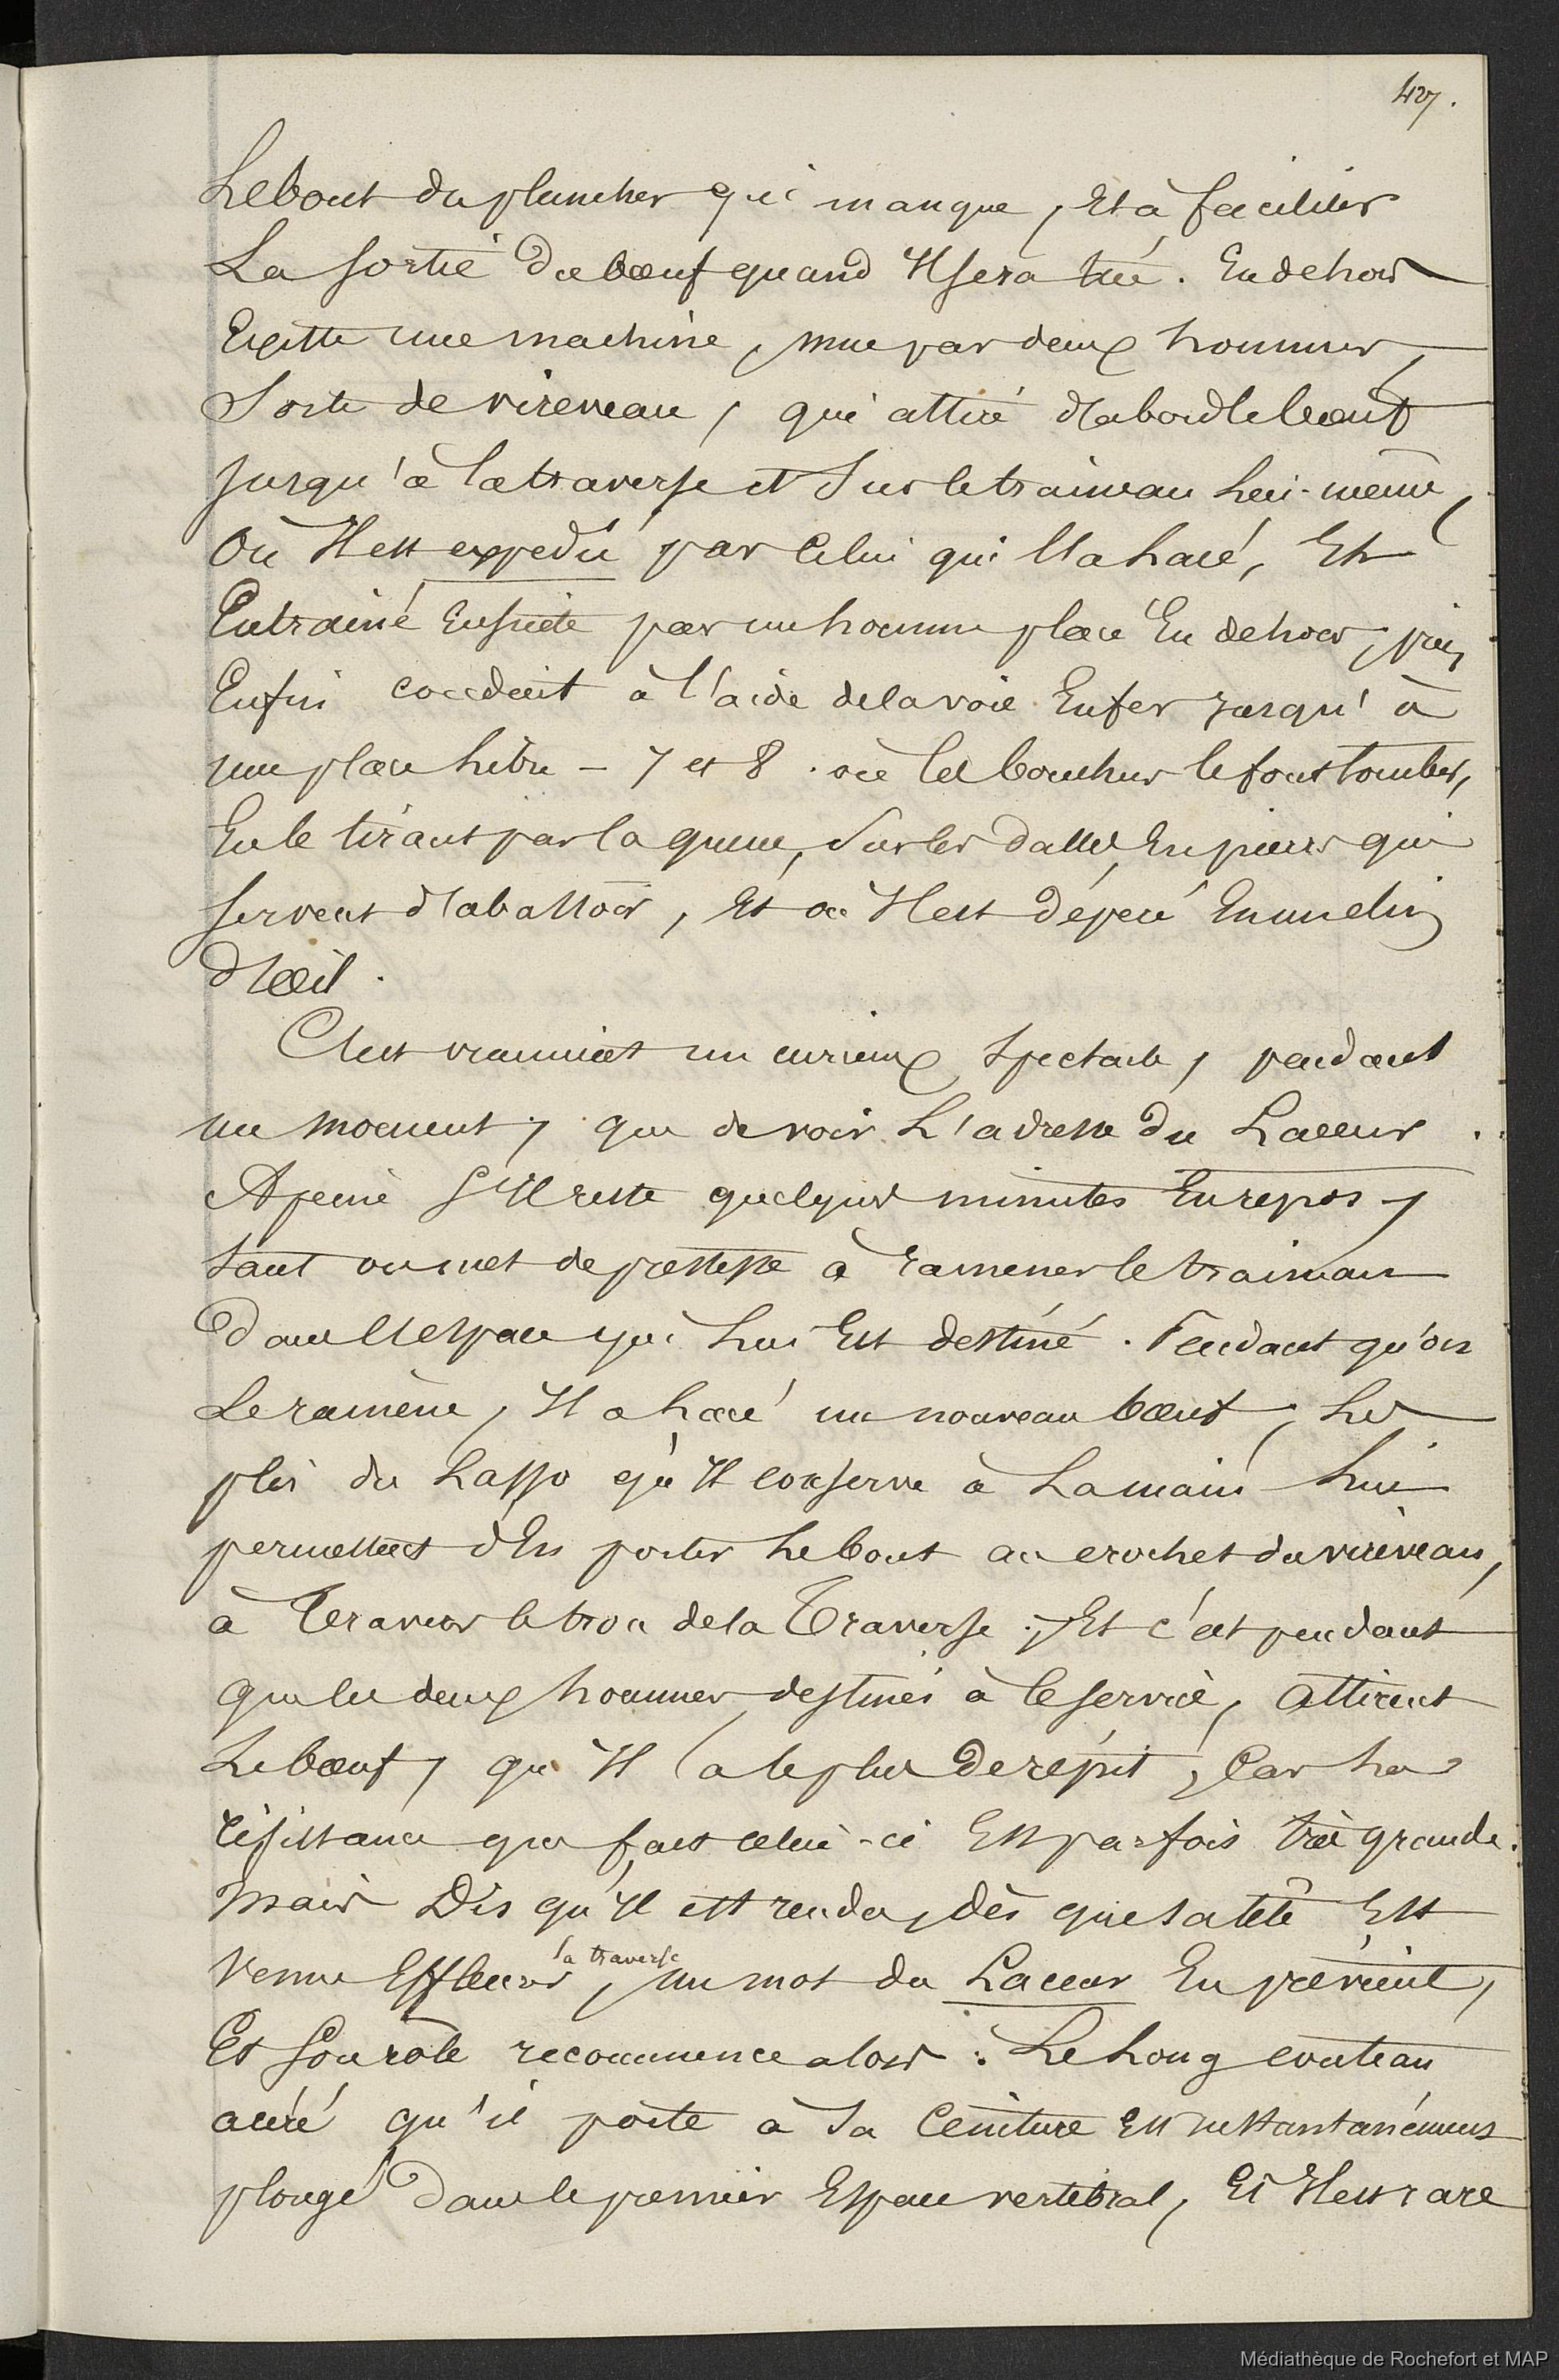 427.
Le bout du plancher qui manque, et à faciliter
La sortie du bœuf quand Il sera tué. En dehors
Existe une machine, mue par deux hommes,
Sorte de vireveau, qui attire d'abord le bœuf
jusqu'à la traverse et sur le traineau lui-même,
Où Il est expedié par celui qui l'a lacé, Et
Entrainé Ensuite par un homme placé En dehors, puis
Enfin conduit à l'aide de la voie En fer jusqu'à
une place libre - 7 et 8. où les bouchers le font tomber,
En le tirant par la queue, sur les dalles En pierres qui
servent d'abattoir, Et où Il est dépecé En un clin
d'œil.
C'est vraiment un curieux spectacle, pendant
un moment, que de voir L'adresse du Laceur.
A peine s'Il reste quelques minutes En repos,
tant on met de prestesse à ramener le traineau
dans l'espace qui lui Est destiné. Pendant qu'on
Le ramène, Il a lacé un nouveau bœuf, Les
plis du Lasso qu'Il conserve à La main lui
permettent d'En porter le bout au crochet du vireveau,
à Travers le trou de la Traverse ; Et c'est pendant
que les deux hommes destinés à ce service, attirent
Le bœuf, qu'Il a le plus de répit, Car La
résistance que fait celui-ci Est parfois très grande.
Mais Dès qu'Il est rendu, dès que sa tête Est
Venue Effleurer la traverse, un mot du Laceur En prévient,
Et son rôle recommence alors : Le Long couteau
acéré qu'il porte à sa Ceinture Est instantanément
plongé dans le premier Espace vertébral, Et Il est rare
Médiathèque de Rochefort et MAP